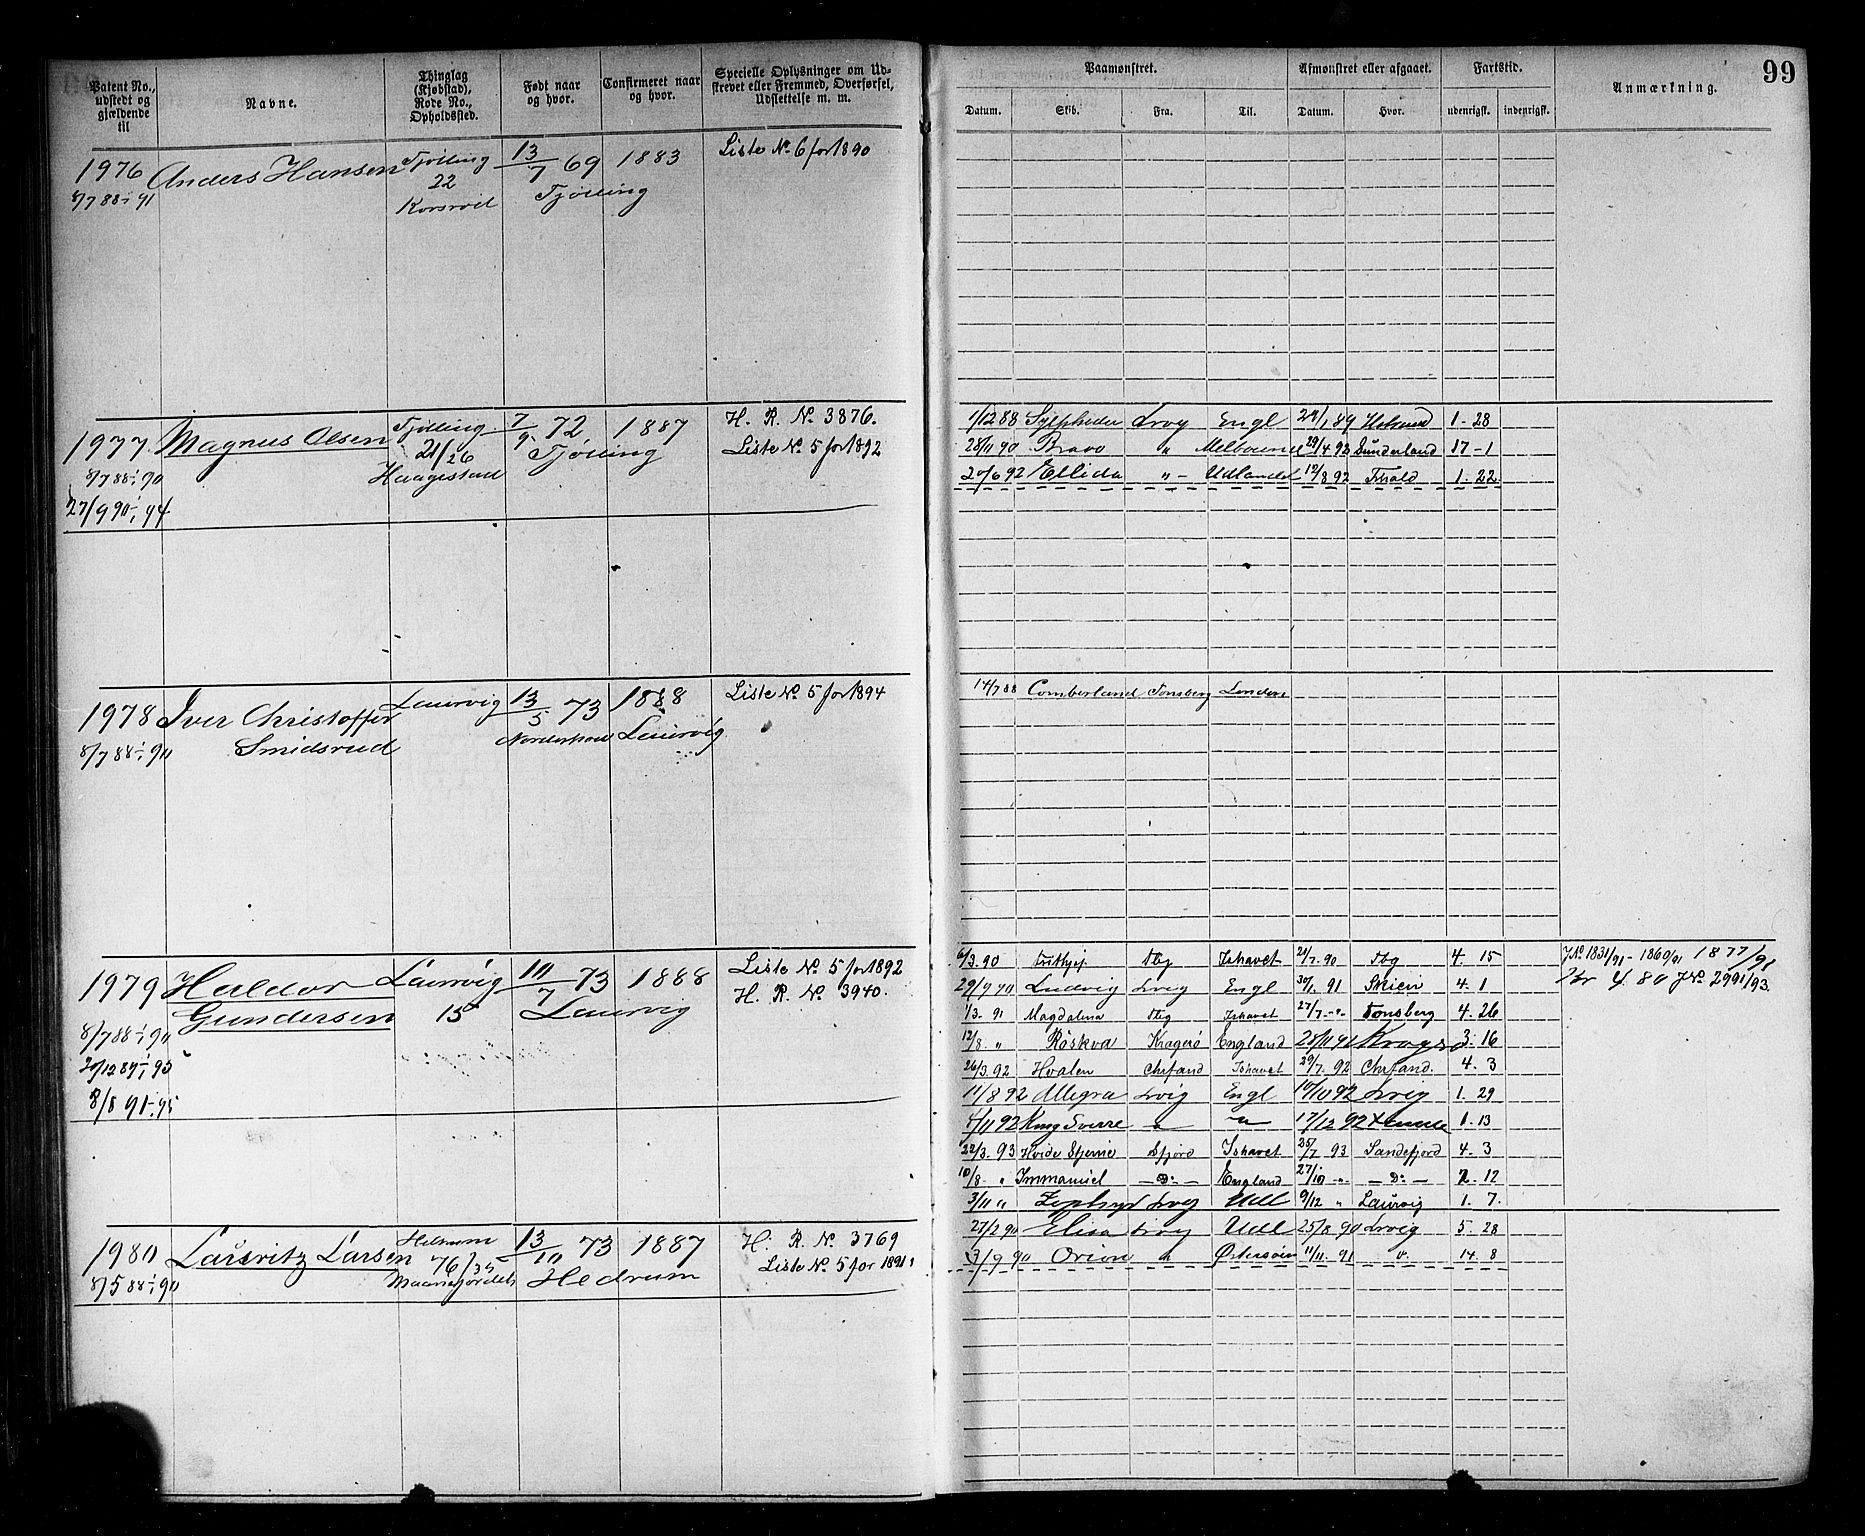 99
Patent No., udstedt og gjældende til
Navne.
Thinglag (Kjøbstad), Rode No., Opholdssted.
Født naar og hvor.
Confirmeret naar og hvor.
Specielle Oplysninger om Udstrevet eller Fremmed, Overførsel, Udslettelse m. m.
Paamønstret.
Datum. Skib. Fra. Til.
Afmønstret eller afgaaet.
Datum. Hvor.
Fartstid.
udenrigsk. indenrigsk.
Anmærkning.
1976 Anders Hansen Tjølling 13/7 69 1883 Liste No 6 for 1890
8/7 88 - 1/1 91 22 Tjølling
1977 Magnus Olsen Tjølling 7/9 72 1887 H. R. No 3876.
21/26 Tjølling Liste No 5 for 1892
8/7 88 - 1/1 90 Haagestad
27/9 90 - 1/1 94
1/12 88 Lrvg Engl 1 - 28
28/11 90 Bravo " 29/4 92 Sunderland 17 - 1
20/6 92 Ellida " - Udlandet 12/8 92 1. 22
1978 Iver Christoffer Laurvig 13/5 73 1888 Liste No 5 for 1894
8/7 88 - 1/1 90 Smidsrud Laurvig
14/7 88 Comberland Tønsberg London
1979 Haldor Laurvig 10/7 73 1888 Liste No 5 for 1892
Gundersen 15 Laurvig H. R. No 3940.
8/7 88 - 1/1 90
8/8 91 - 95
6/3. 90 Tbg Ishavet 21/7. 90 Tbg 4. 15
29/9 90 Ludvig Lrvig Engl 30/1 91 Skien 4. 1
1/3. 91 Magdalena Tbg Ishavet 27/7. - " Tønsberg 4. 26
12/8. " Røskva Kragerø England 28/11 91 Kragerø 3. 16
26/3. 92 Hvalen Chrsand Ishavet 29/7. 92 Chrsand. 4. 3
11/8 92 Allegra Lrvig Engl 10/10 92 Lrvig 1. 29
4/11 92 Kong Sverre " " 17/12 92 1. 13
22/3. 93 Hvide Stjerne Sfjord Ishavet 25/7 93 Sandefjord 4. 3
10/8. " Immanuel - Do - England 27/10 - " - Do - 2. 12
3/11 " Zephyr Lrvg Udl 9/12 " Laurvig 1. 7.
1980 Lauritz Larsen 13/10 73 1887 H. R. No 3769
8/5 88 - 1/1 90 76/35 Hedrum Liste No 5 for 1891
27/2 90 Elisa Lrvg Udl 25/8 90 Lrvig 5. 28
3/9 90 Orion " Østersøen 11/11. 91 ". 14. 8